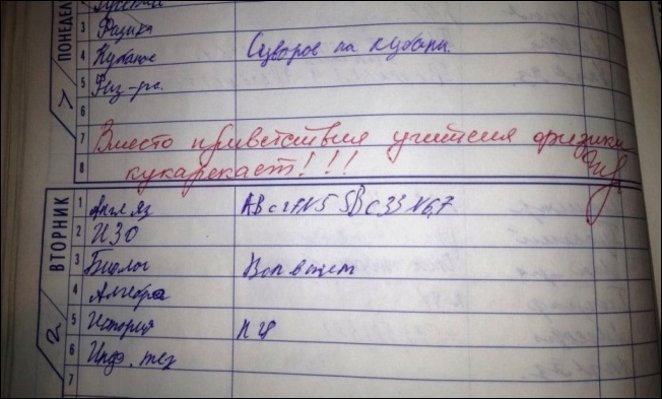 ПОНЕДЕЛ
Русский
3 Физика
4 Кубанов Суворов на кубани.
5 Физ-ра.
6
7 Вместо приветствия учителя физики
8 кукарекает!!!
ВТОРНИК
1 Англ яз АВ с 27 N5 SB с 33 N6,7
2 ИЗО
3 Биолог
4 Алгебра
5 История
6 Инф. тех
7